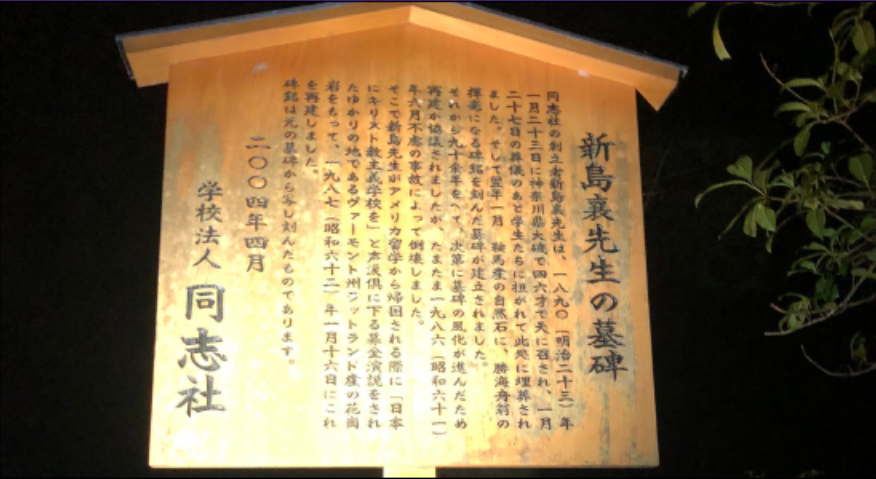 新島襄先生の墓碑
同志社の創立者新島襄先生は、一八九〇（明治二十三）年
一月二十三日に神奈川県大磯で四六才で天に召され、一月
二十七日の葬儀のあと学生たちに担がれて此処に埋葬され
ました。そして翌年一月、鞍馬産の自然石に、勝海舟翁の
揮毫になる碑銘を刻んだ墓碑が建立されました。
それから九十余年をへて、次第に墓碑の風化が進んだため
再建が協議されましたが、たまたま一九八六（昭和六十一）
年六月不慮の事故によって倒壊しました。
そこで新島先生がアメリカ留学から帰国される際に「日本
にキリスト教主義学校を」と声涙倶に下る募金演説をされ
たゆかりの地であるヴァーモント州ラットランド産の花崗
岩をもって、一九八七（昭和六十二）年一月十六日にこれ
を再建しました。
碑銘は元の墓碑から写し刻んだものであります。
二〇〇四年四月
学校法人 同志社